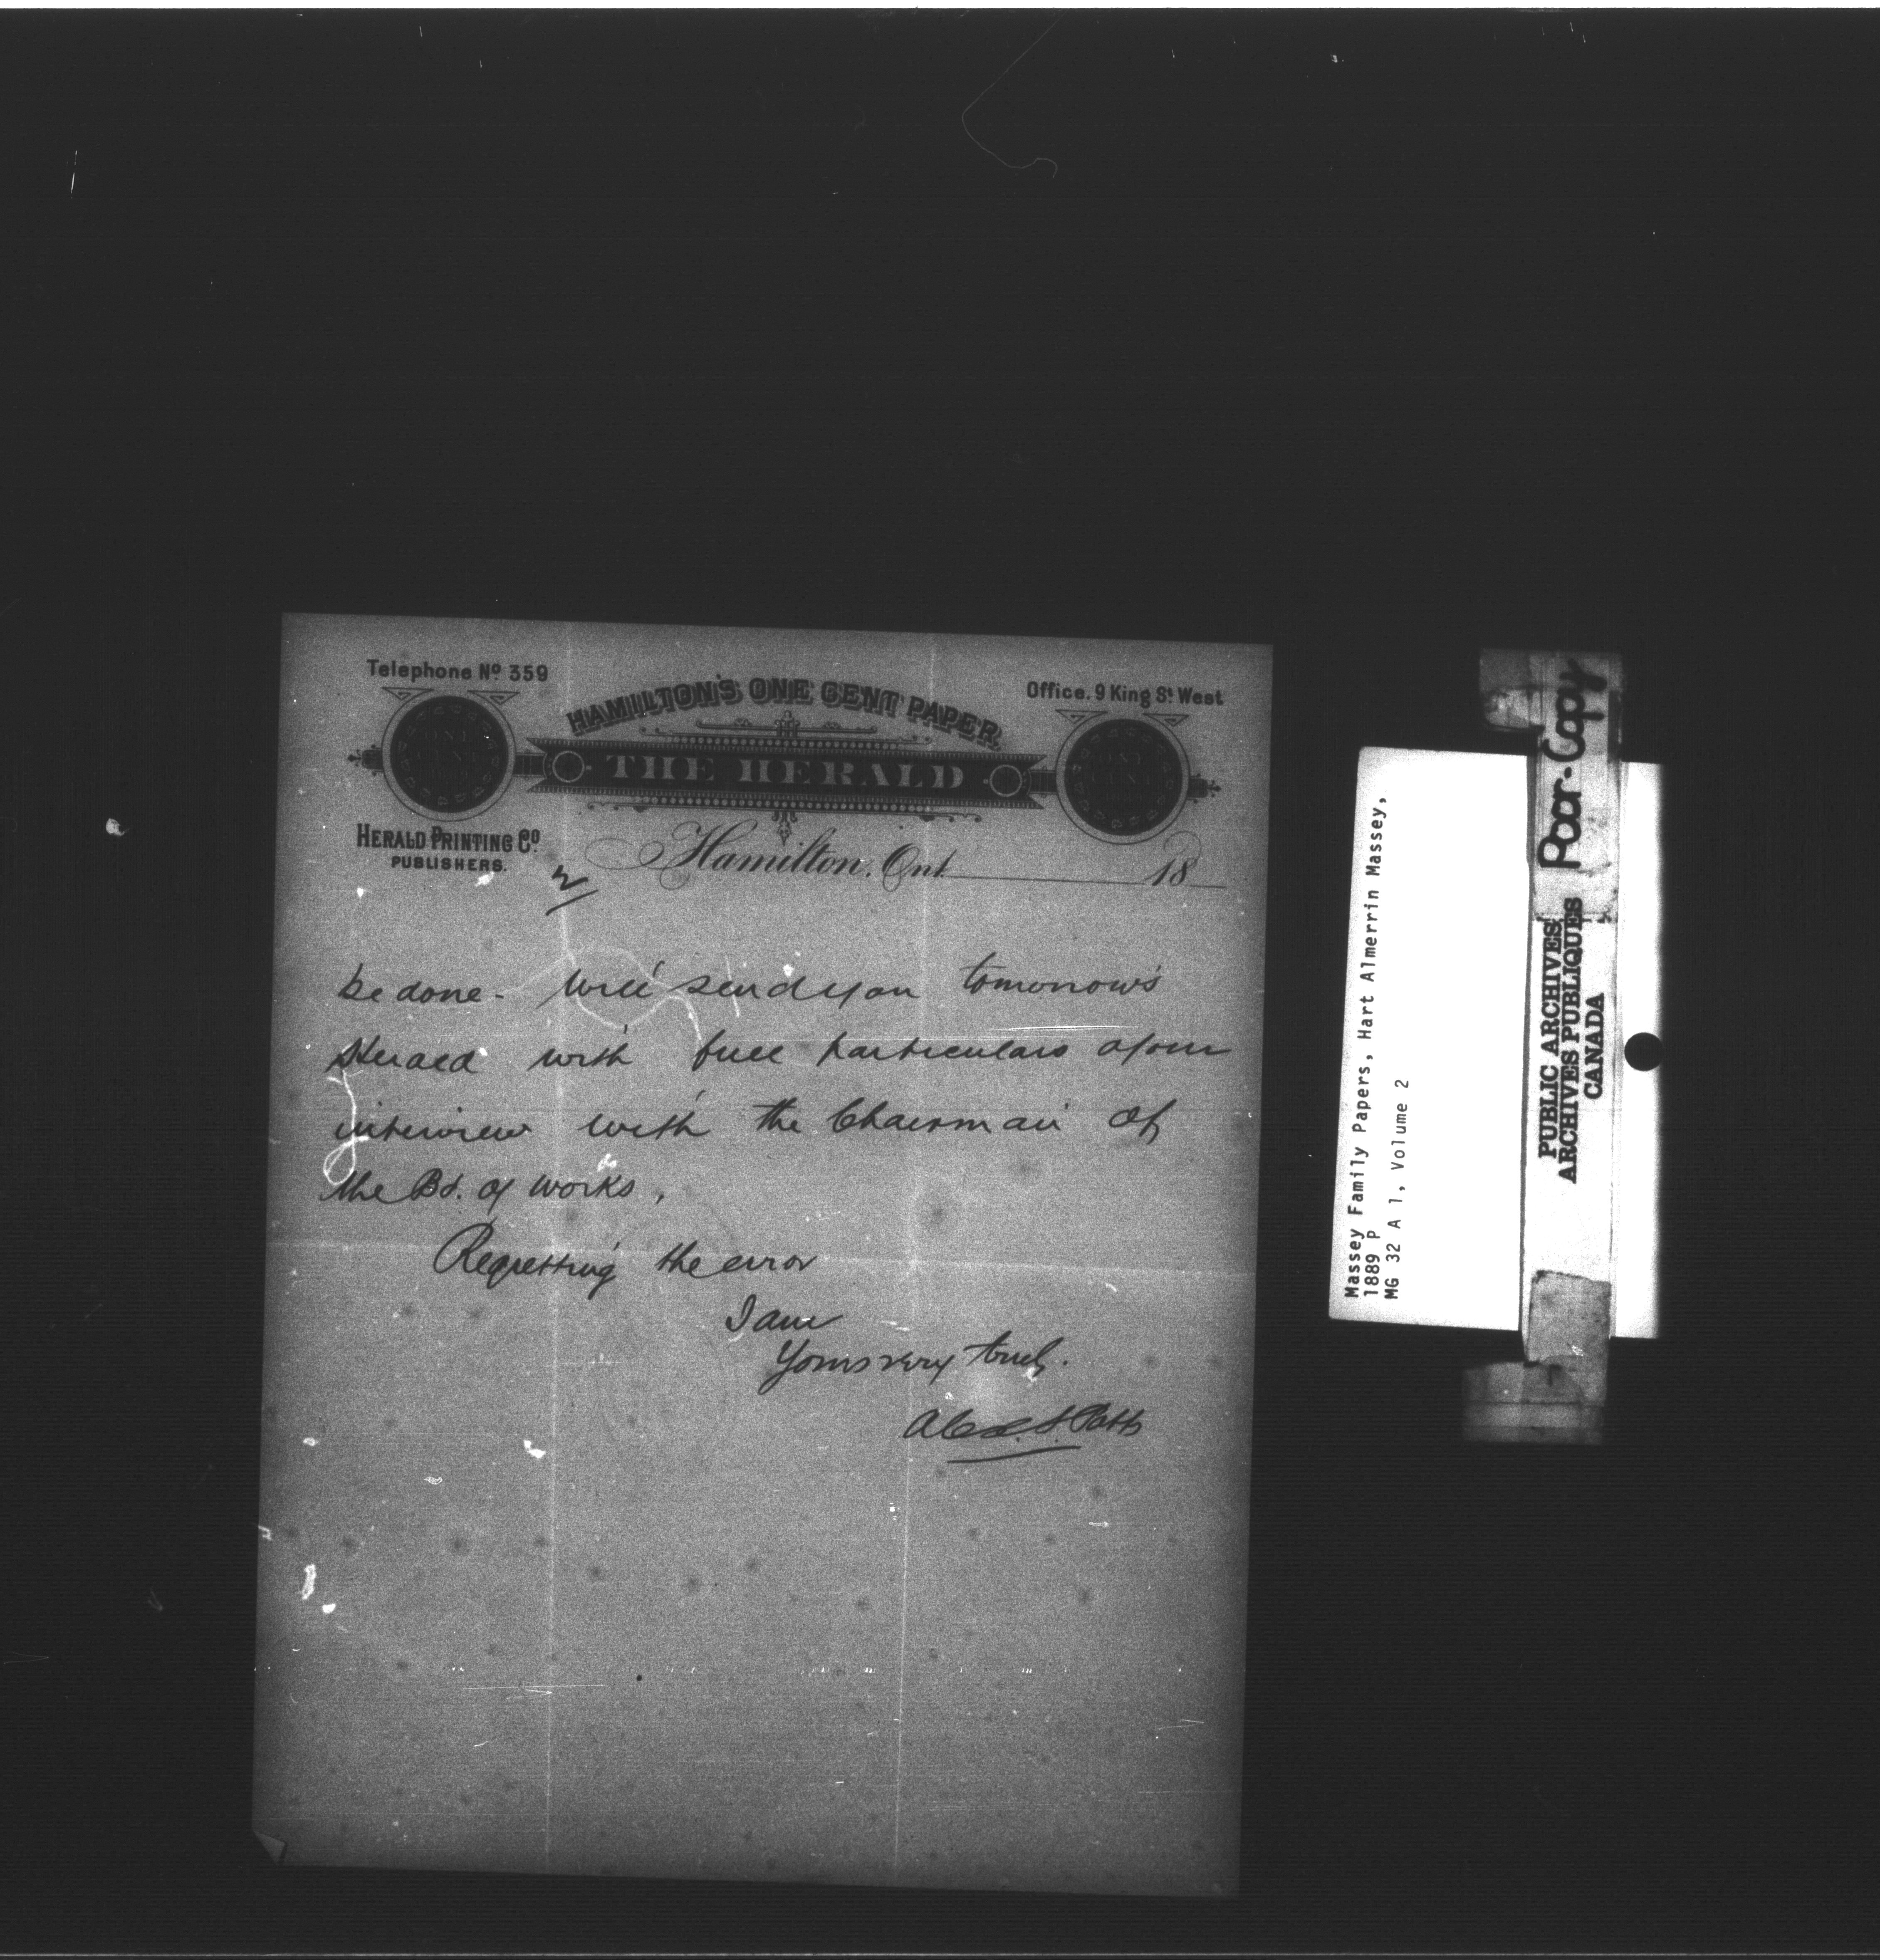 Telephone No 359
HAMILTON'S ONE CENT PAPER,
Office. 9 King St West
ONE CENT 1889
THE HERALD
ONE CENT 1889
HERALD PRINTING Co.
PUBLISHERS.
Hamilton, Ont. 18
2
be done - will send you tomorrow's
Herald with full particulars of our
interview with the Chairman of
the Bd. of Works,
Regretting the error
I am
Yours very truly.
Alex. S. Potts
Massey Family Papers, Hart Almerrin Massey,
1889 P
MG 32 A 1, Volume 2
Poor-Copy
PUBLIC ARCHIVES
ARCHIVES PUBLIQUES
CANADA